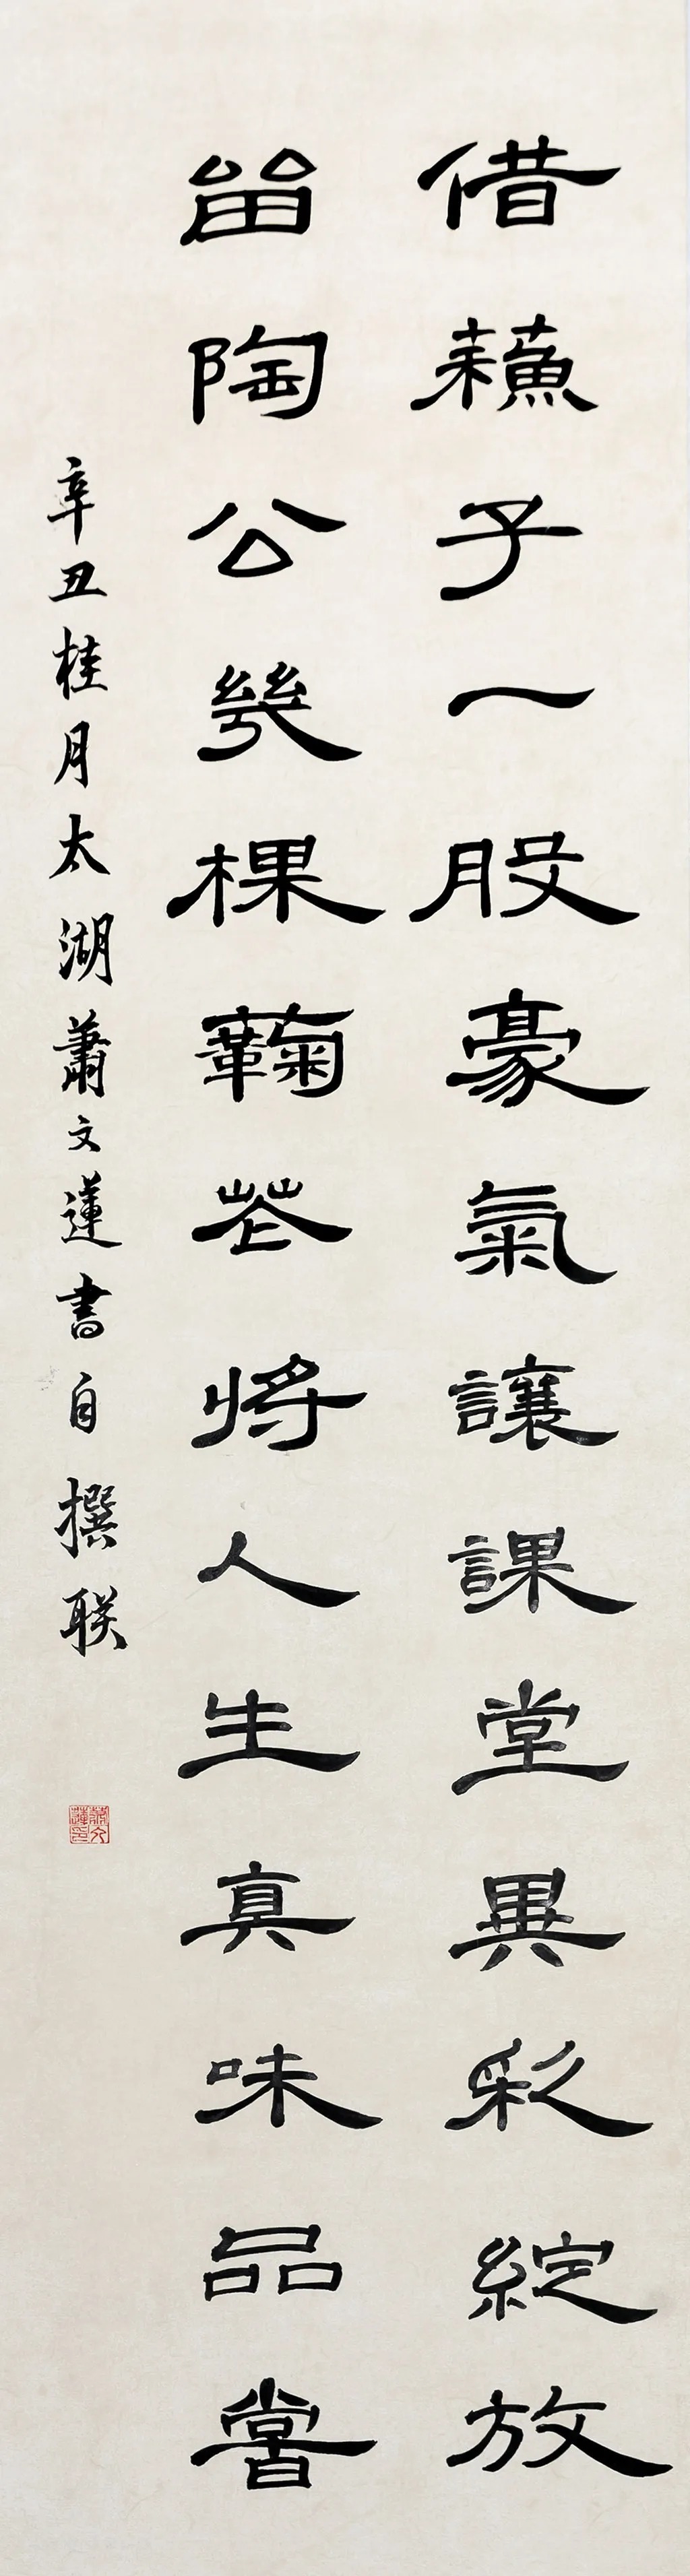 借蘇子一股豪氣讓課堂異彩綻放
留陶公幾棵鞠花將人生真味品嘗
辛丑桂月太湖蕭文蓮書自撰联
蕭文蓮印